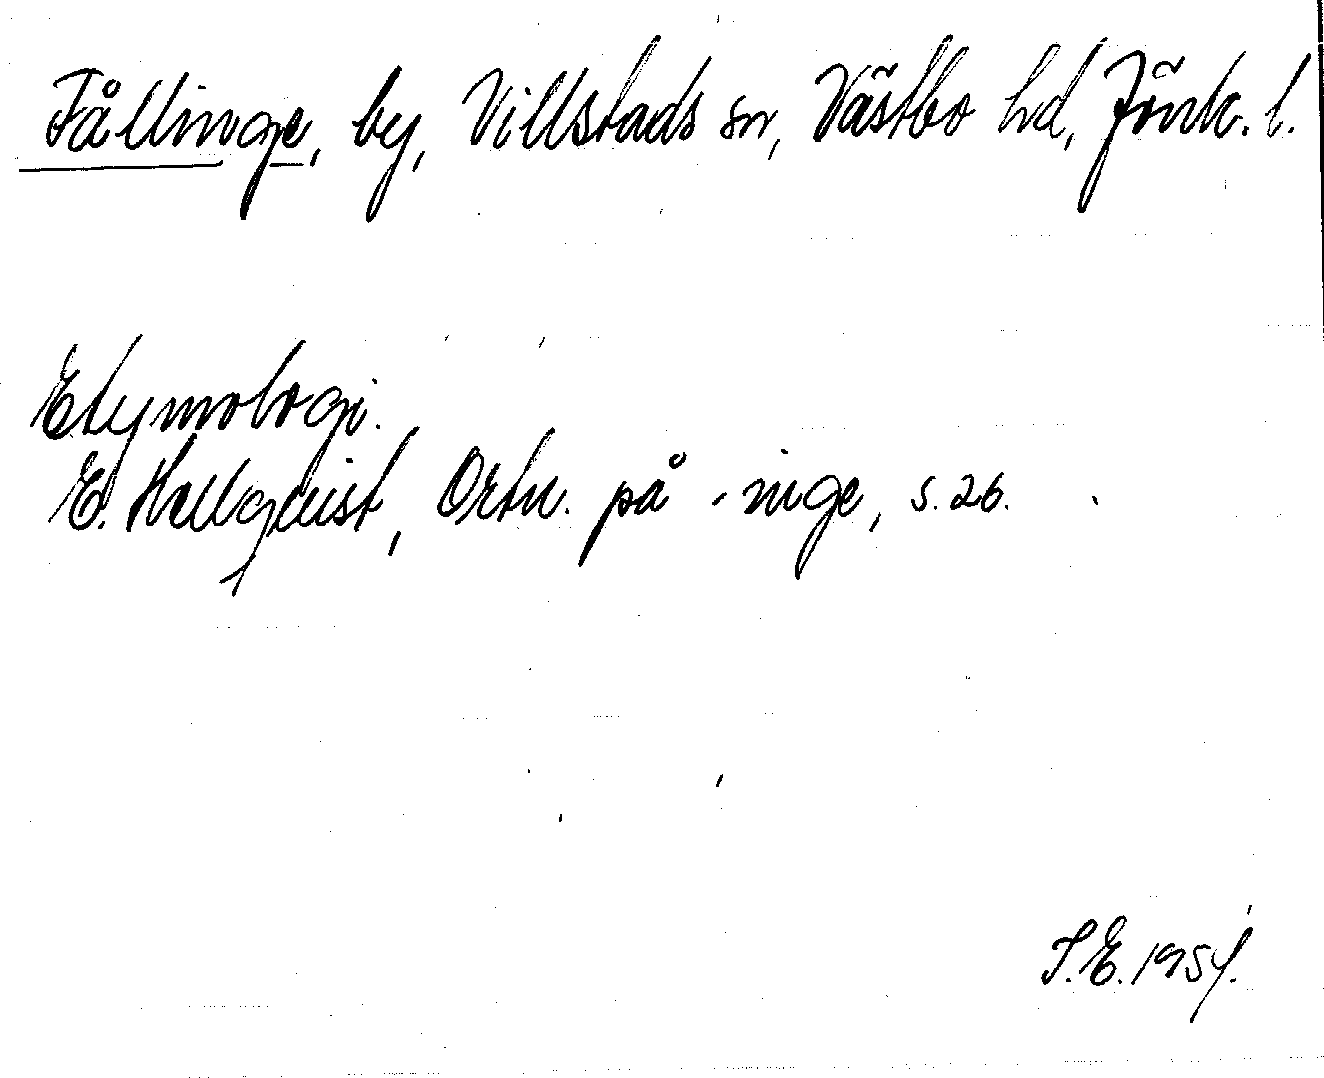 Fållinge, by, Villstads sn, Västbo hd, Jönk. l.
Etymologi.
E. Hellquist, Ortn. på -inge, s. 26.
S.E. 1954.